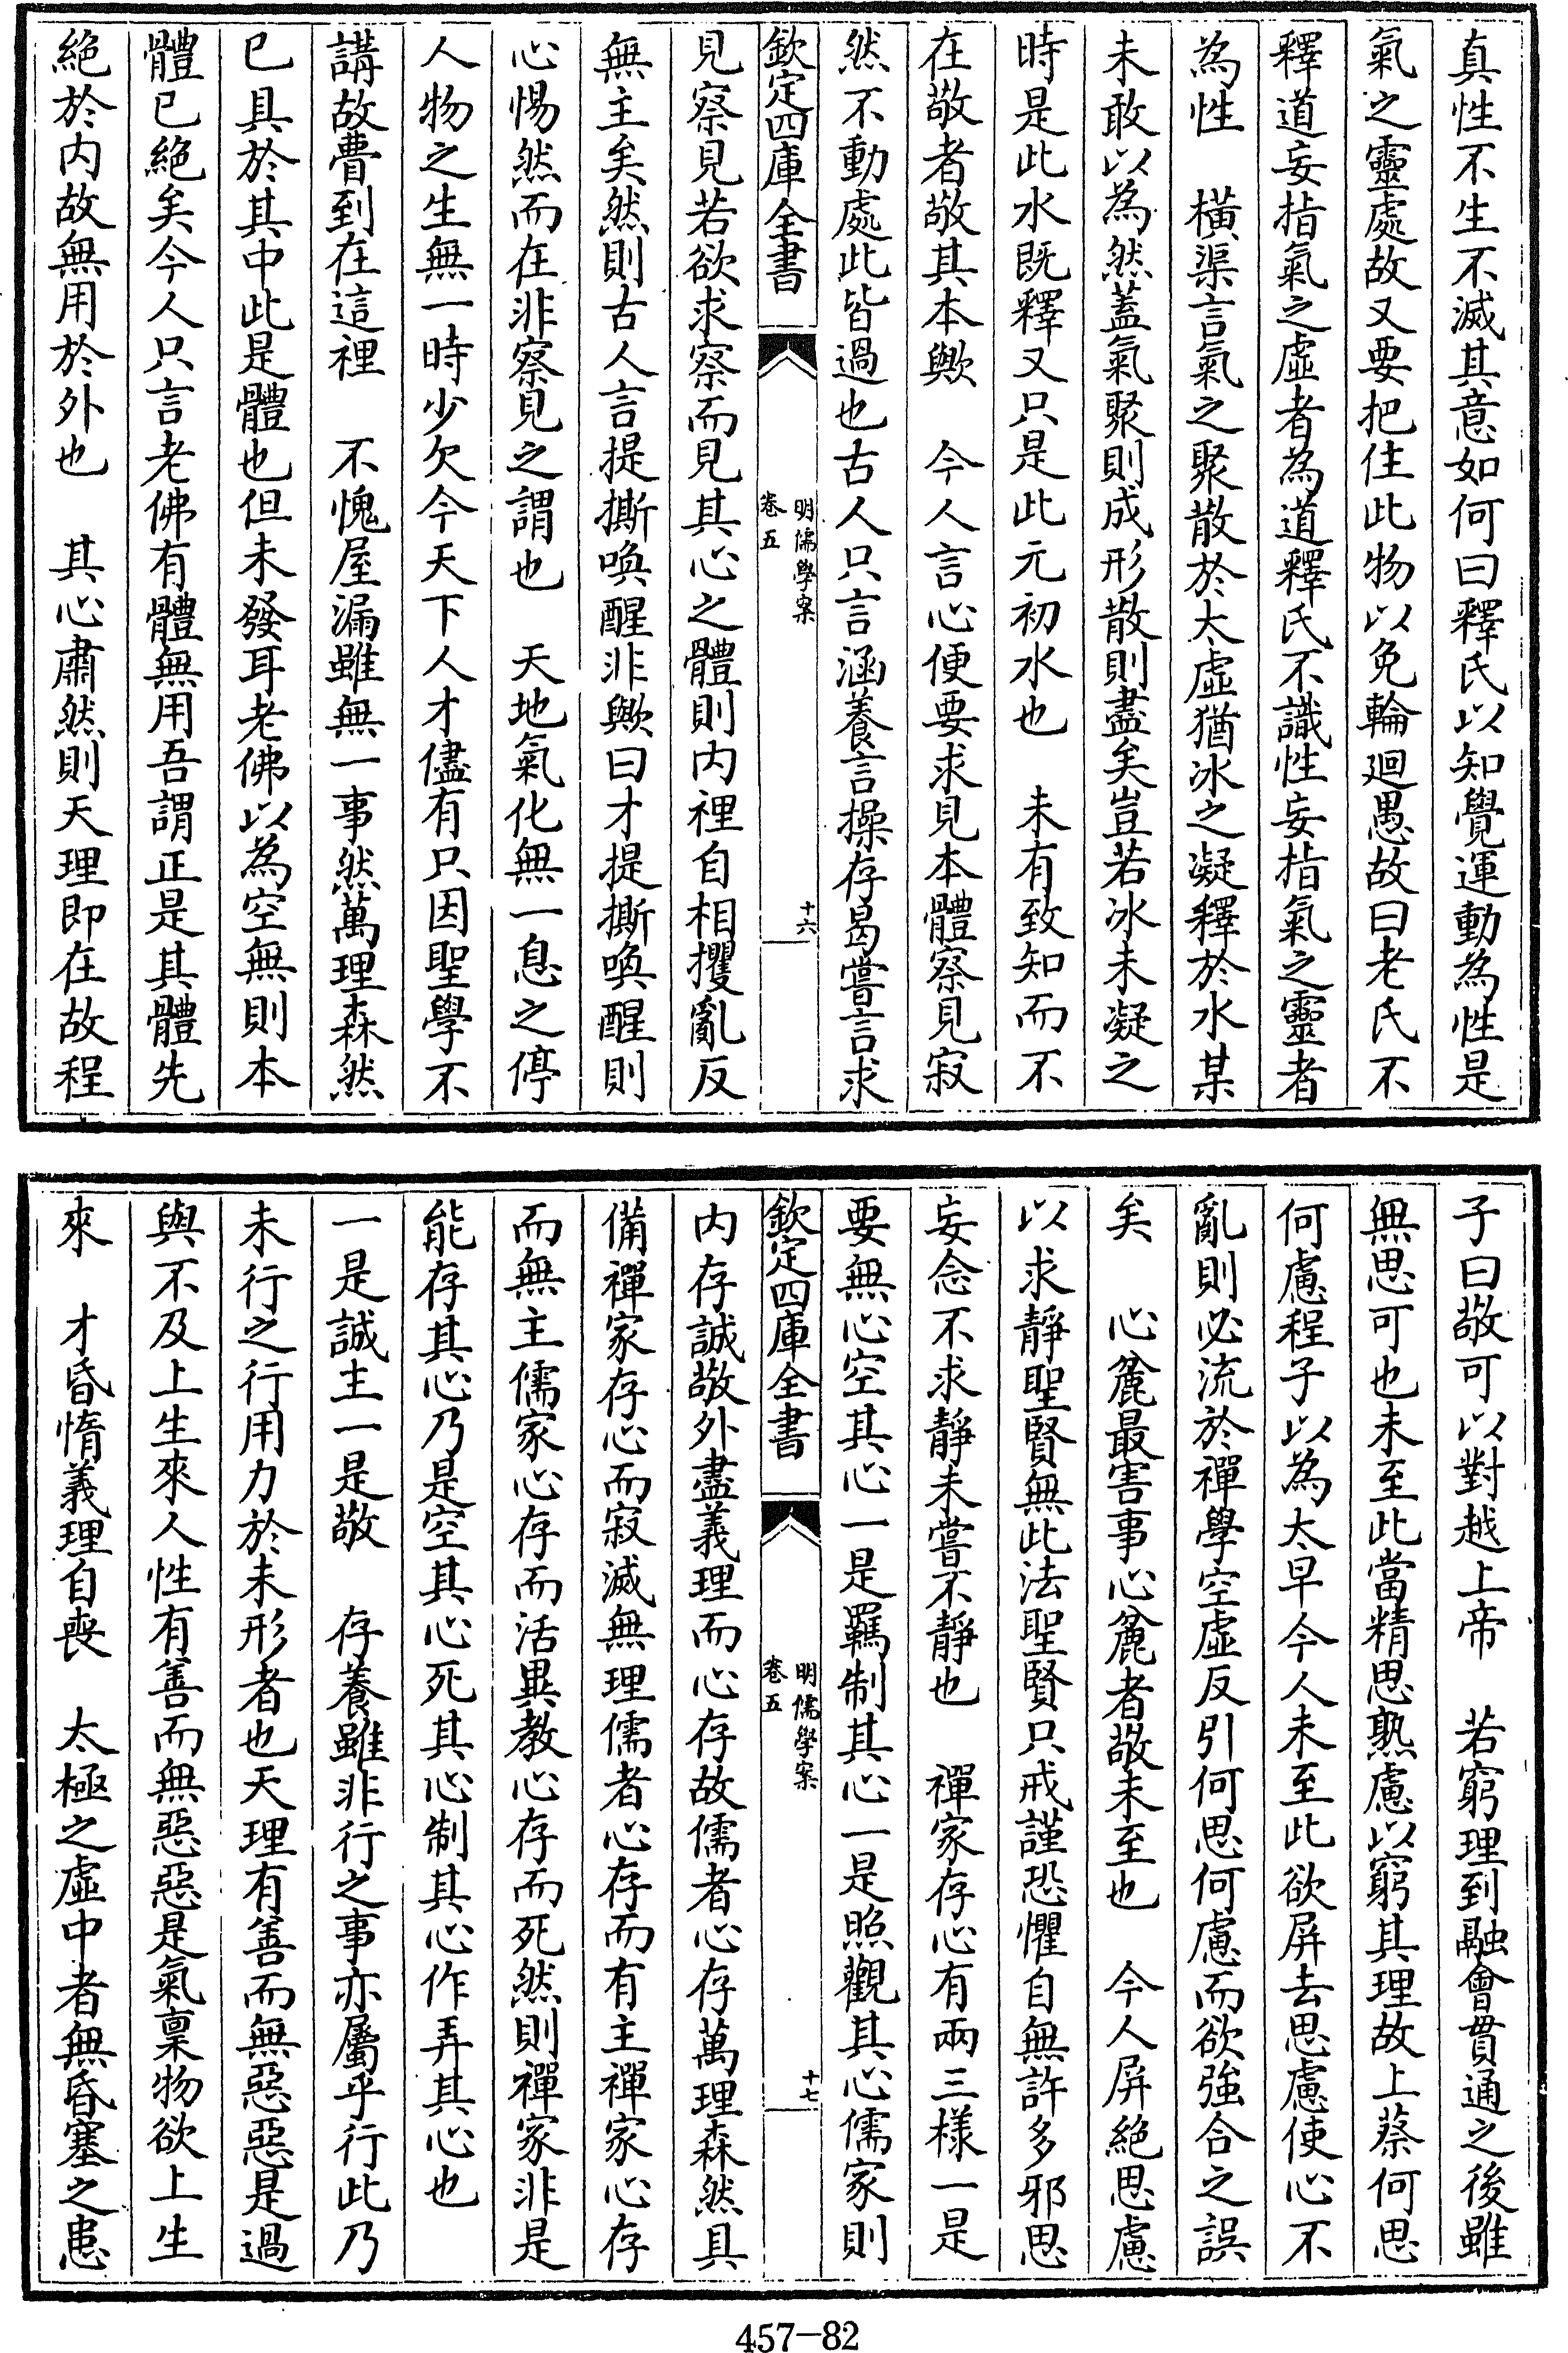 真性不生不滅其意如何曰釋氏以知覺運動為性是
氣之靈處故又要把住此物以免輪廻愚故曰老氏不
釋道妄指氣之虛者為道釋氏不識性妄指氣之靈者
為性　橫渠言氣之聚散於太虛猶冰之凝釋於水某
未敢以為然蓋氣聚則成形散則盡矣豈若冰未凝之
時是此水既釋又只是此元初水也　未有致知而不
在敬者敬其本歟　今人言心便要求見本體察見寂
然不動處此皆過也古人只言涵養言操存曷嘗言求
欽定四庫全書
明儒學案
卷五
十六
見察見若欲求察而見其心之體則内裡自相攫亂反
無主矣然則古人言提撕喚醒非歟曰才提撕喚醒則
心惕然而在非察見之謂也　天地氣化無一息之停
人物之生無一時少欠今天下人才儘有只因聖學不
講故舋到在這裡　不愧屋漏雖無一事然萬理森然
已具於其中此是體也但未發耳老佛以為空無則本
體已絕矣今人只言老佛有體無用吾謂正是其體先
絕於内故無用於外也　其心肅然則天理即在故程
子曰敬可以對越上帝　若窮理到融會貫通之後雖
無思可也未至此當精思熟慮以窮其理故上蔡何思
何慮程子以為太早今人未至此欲屏去思慮使心不
亂則必流於禪學空虛反引何思何慮而欲強合之誤
矣　心麄最害事心麄者敬未至也　今人屏絕思慮
以求靜聖賢無此法聖賢只戒謹恐懼自無許多邪思
妄念不求靜未嘗不靜也　禪家存心有兩三樣一是
要無心空其心一是羈制其心一是照觀其心儒家則
欽定四庫全書
明儒學案
卷五
十七
内存誠敬外盡義理而心存故儒者心存萬理森然具
備禪家存心而寂滅無理儒者心存而有主禪家心存
而無主儒家心存而活異教心存而死然則禪家非是
能存其心乃是空其心死其心制其心作弄其心也
一是誠主一是敬　存養雖非行之事亦屬乎行此乃
未行之行用力於未形者也天理有善而無惡惡是過
與不及上生來人性有善而無惡惡是氣稟物欲上生
來　才昏惰義理自喪　太極之虛中者無昏塞之患
457-82